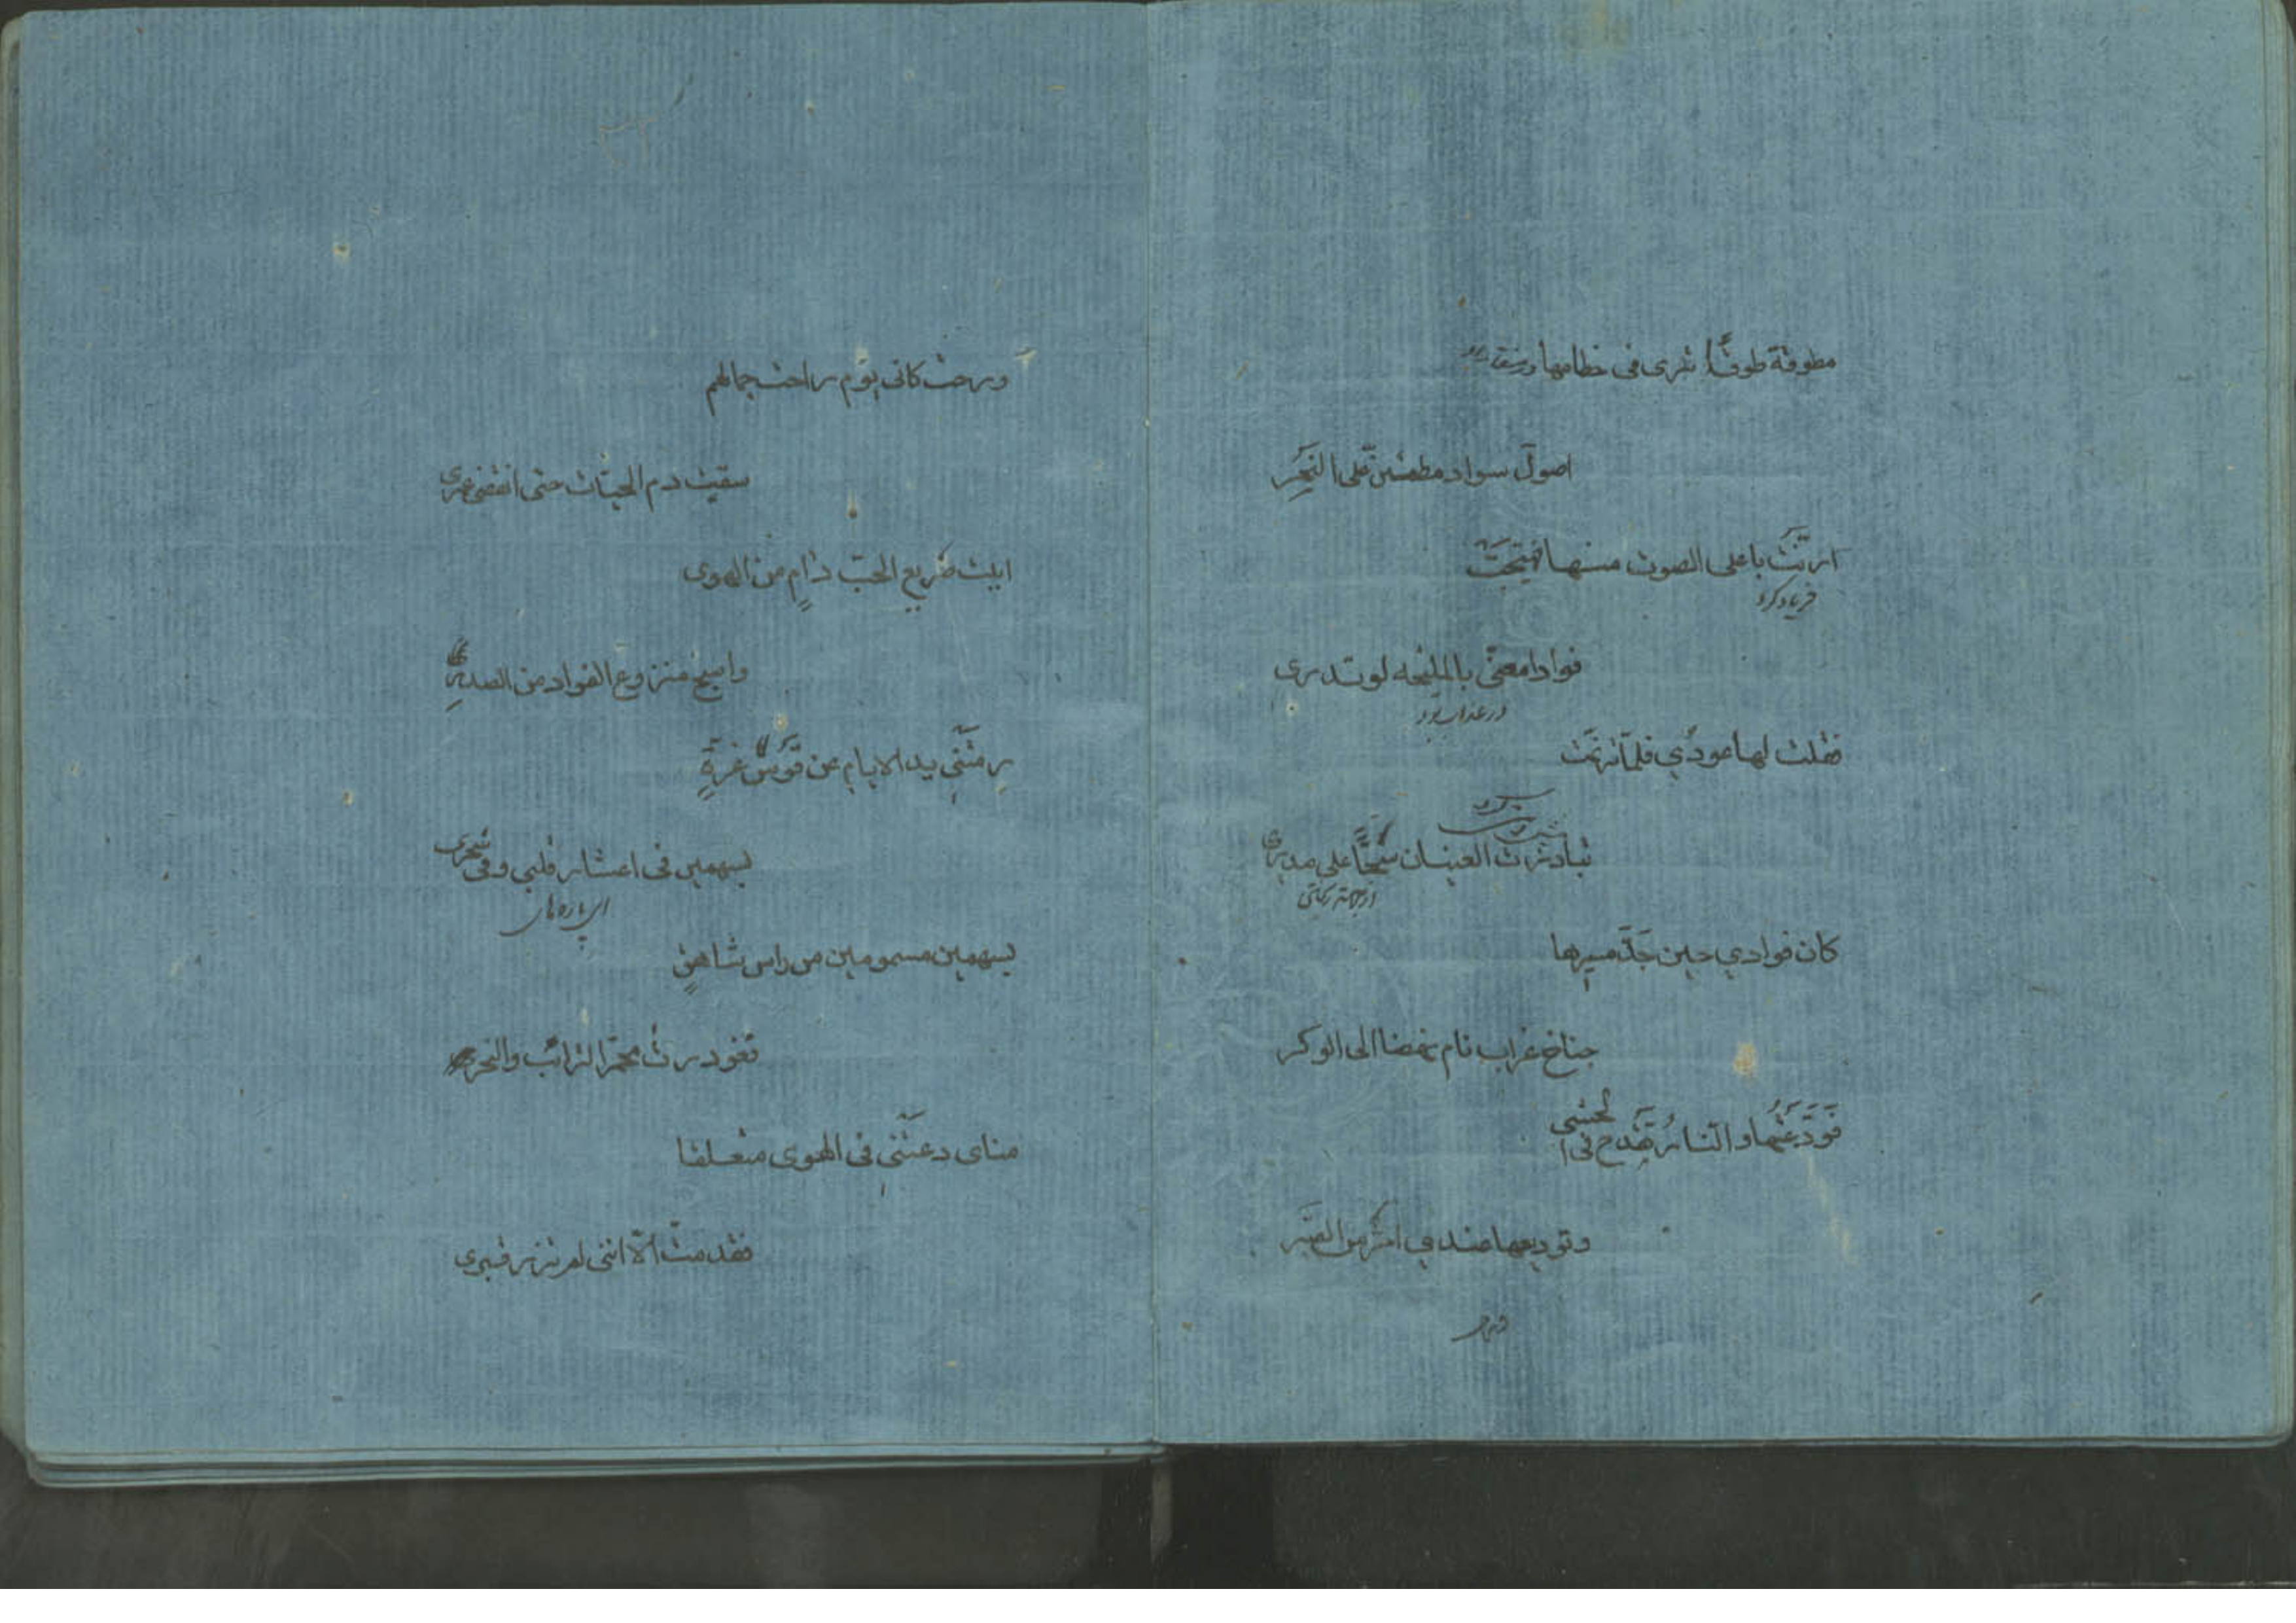 مطوقة طوقًا ترى فى خطامها
اصول سواد مطمئن على النَحِر
ارنَّتْ باعلى الصوت منها فهيَّجَتْ
فریاد کرد
فوادا معنّى بالمليحه لو تدرى
در عذاب بود
فقلت لها عودي فلمّا ترنمت
تبادرت العينان سُحًّا على صدرى
كان فوادي حين جَدّ مسيرها
جناح غراب نام نهضا الى الوكر
فَوَدَّعْتُهَا والنارُ تَقْدَح فى الحشى
وتوديعها عندي امَرُّ من الصَّبَر
ورحت
ورحت كانى يوم راحت جمالهم
سقيت دم الحيّات حتى انقضى عمرى
ابيت صريع الحبّ دامٍ من الهوى
واصبح منزوع الفواد من الصدرِ
رمتْنِي يد الايام عن قوس غرةٍ
بسهمين فى اعشار قلبي وفى سحرى
ای پاره های
بسهمين مسمومين من راس شاهقٍ
فغودرت محمرّ الترائب والنحر
مناى دعتْنِي فى الهوى متعلقا
فقد متّ الّا اننى لم تزر قبرى